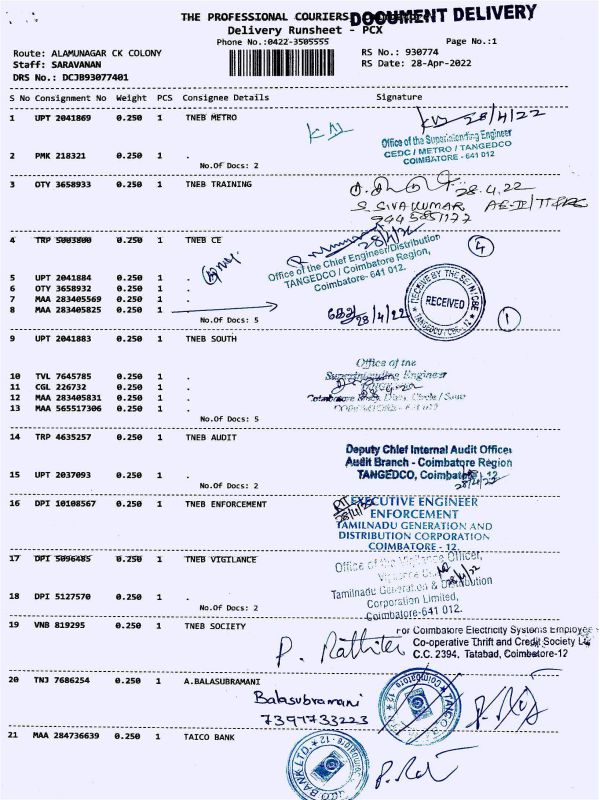 THE PROFESSIONAL COURIERS
DOCUMENT DELIVERY
Delivery Runsheet - PCX
Phone No.:0422-3505555
Page No.:1
Route: ALAMUNAGAR CK COLONY
RS No.: 930774
Staff: SARAVANAN
RS Date: 28-Apr-2022
DRS No.: DCJB93077401
S No Consignment No Weight PCS Consignee Details Signature
1 UPT 2041869 0.250 1 TNEB METRO
28/4/22
Office of the Superintending Engineer
CEDC / METRO / TANGEDCO
COIMBATORE - 641 012
2 PMK 218321 0.250 1 .
No.Of Docs: 2
3 OTY 3658933 0.250 1 TNEB TRAINING
28.4.22
S SIVAKUMAR
4 TRP 5003800 0.250 1 TNEB CE
28/4/22
4
Office of the Chief Engineer/Distribution
TANGEDCO / Coimbatore Region,
Coimbatore- 641 012.
5 UPT 2041884 0.250 1 .
6 OTY 3658932 0.250 1 .
7 MAA 283405569 0.250 1 .
8 MAA 283405825 0.250 1 .
RECEIVED
28/4/22
1
No.Of Docs: 5
9 UPT 2041883 0.250 1 TNEB SOUTH
Office of the
Superintending Engineer
10 TVL 7645785 0.250 1 .
11 CGL 226732 0.250 1 .
12 MAA 283405831 0.250 1 .
13 MAA 565517306 0.250 1 .
No.Of Docs: 5
14 TRP 4635257 0.250 1 TNEB AUDIT
Deputy Chief Internal Audit Officer
Audit Branch - Coimbatore Region
TANGEDCO, Coimbatore - 12
28/4/22
15 UPT 2037093 0.250 1 .
No.Of Docs: 2
16 DPI 10108567 0.250 1 TNEB ENFORCEMENT
EXECUTIVE ENGINEER
ENFORCEMENT
TAMILNADU GENERATION AND
DISTRIBUTION CORPORATION
COIMBATORE - 12.
17 DPI 5096485 0.250 1 TNEB VIGILANCE
Office of the Vigilance Officer,
Tamilnadu Generation & Distribution
Corporation Limited,
Coimbatore-641 012.
18 DPI 5127570 0.250 1 .
No.Of Docs: 2
19 VNB 819295 0.250 1 TNEB SOCIETY
For Coimbatore Electricity Systems Employee
Co-operative Thrift and Credit Society Ltd
C.C. 2394, Tatabad, Coimbatore-12
20 TNJ 7686254 0.250 1 A.BALASUBRAMANI
Balasubramani
7397733223
21 MAA 284736639 0.250 1 TAICO BANK